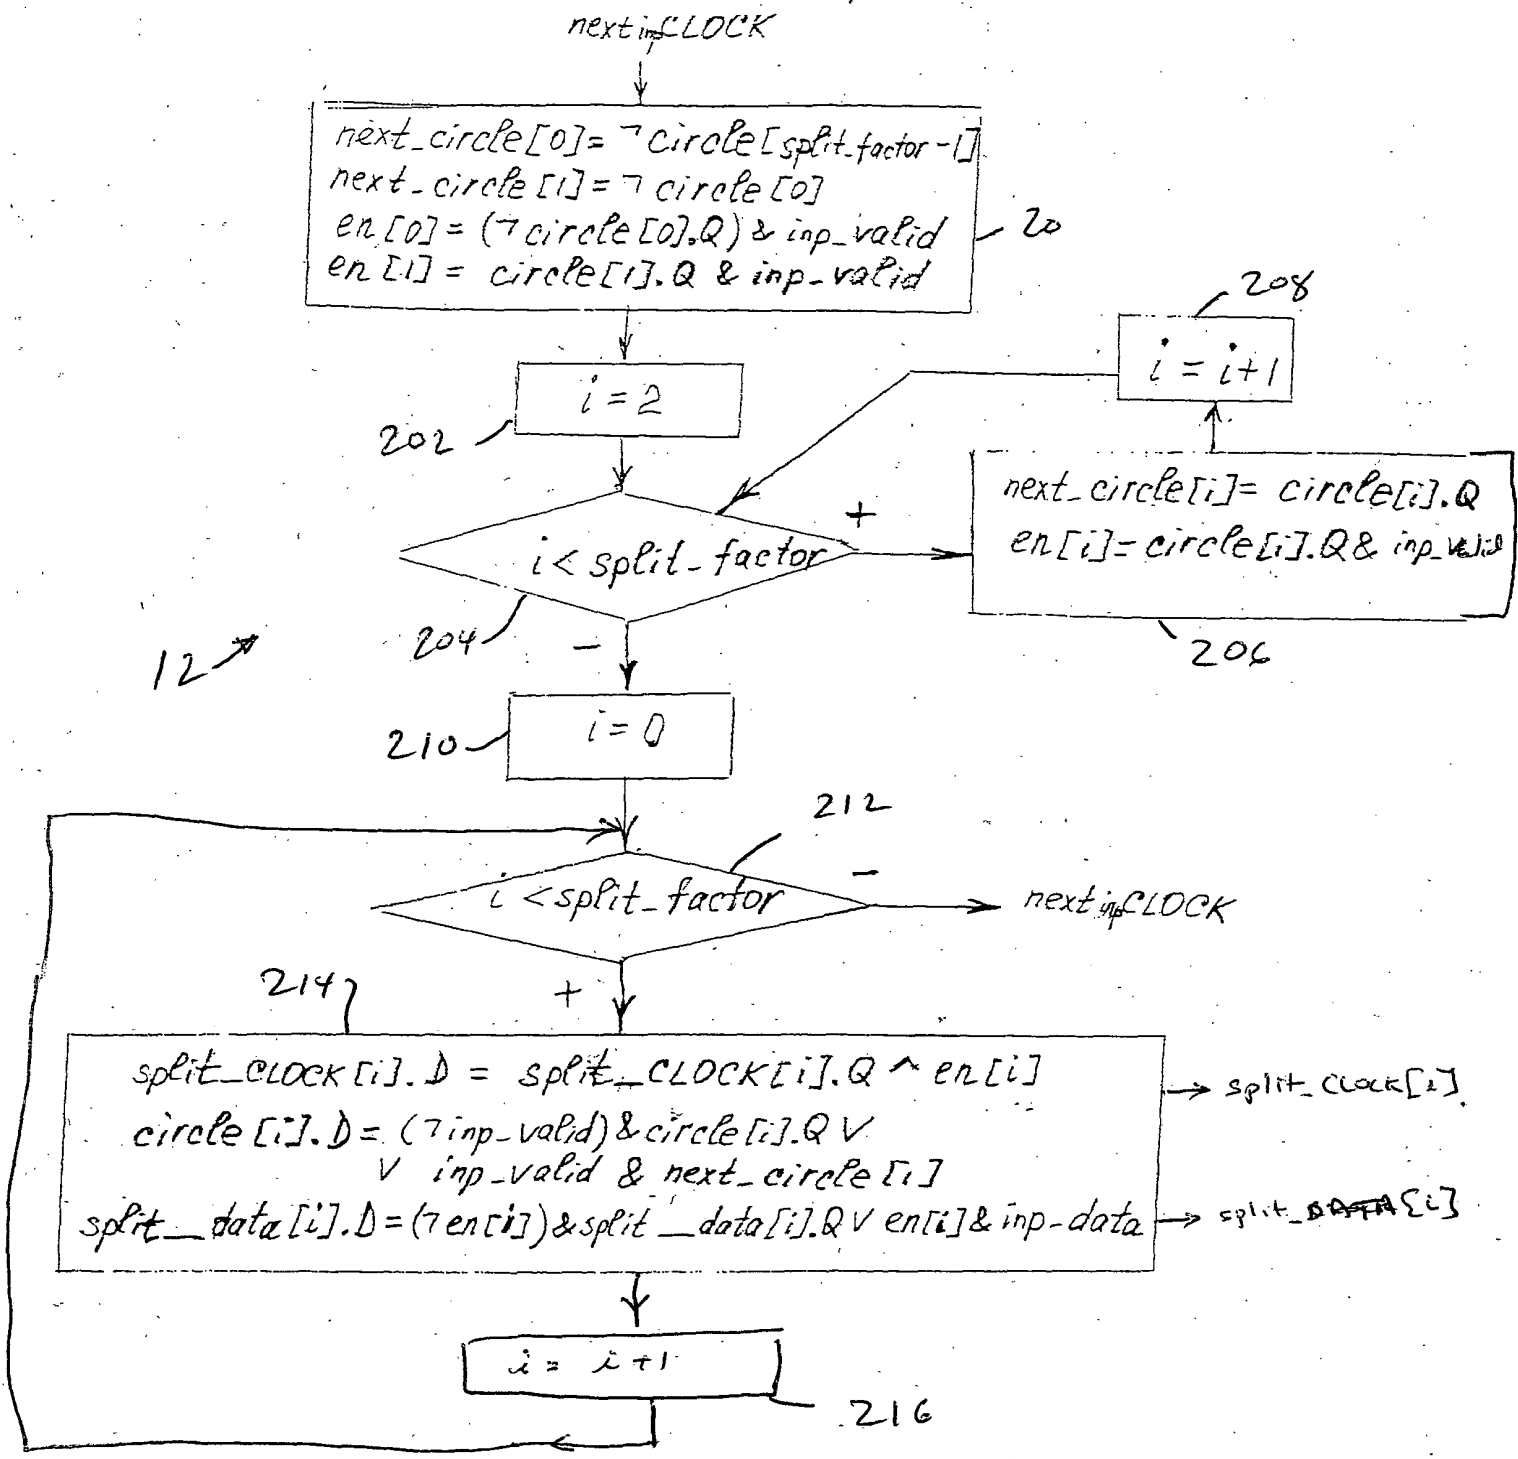 next inp CLOCK
next_circle[0]= ¬ circle[split_factor-1]
next_circle[1]= ¬ circle[0]
en[0]= (¬ circle[0].Q) & inp_valid
en[1] = circle[1].Q & inp_valid
20
208
i = i+1
i = 2
202
next_circle[i]= circle[i].Q
en[i]=circle[i].Q & inp_valid
+
i < split_factor
204
-
206
12
i = 0
210
212
i < split_factor
-
next inp CLOCK
214
+
split_CLOCK[i].D = split_CLOCK[i].Q ^ en[i]
split_CLOCK[i].
circle[i].D = (¬ inp_valid) & circle[i].Q V
V inp_valid & next_circle[i]
split_data[i].D=(¬ en[i]) & split_data[i].Q V en[i] & inp_data
split_DATA[i]
i = i+1
216